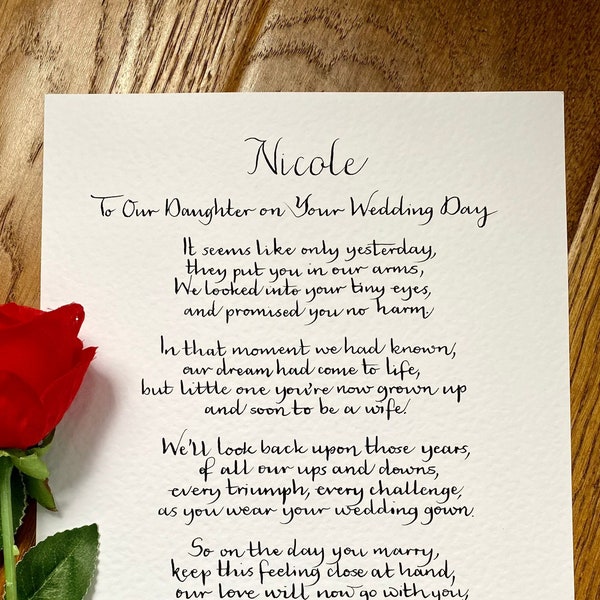 Nicole
To Our Daughter on Your Wedding Day
It seems like only yesterday,
they put you in our arms,
We looked into your tiny eyes,
and promised you no harm.
In that moment we had known,
our dream had come to life,
but little one you're now grown up
and soon to be a wife!
We'll look back upon those years,
of all our ups and downs,
every triumph, every challenge,
as you wear your wedding gown.
So on the day you marry,
keep this feeling close at hand,
our love will now go with you,